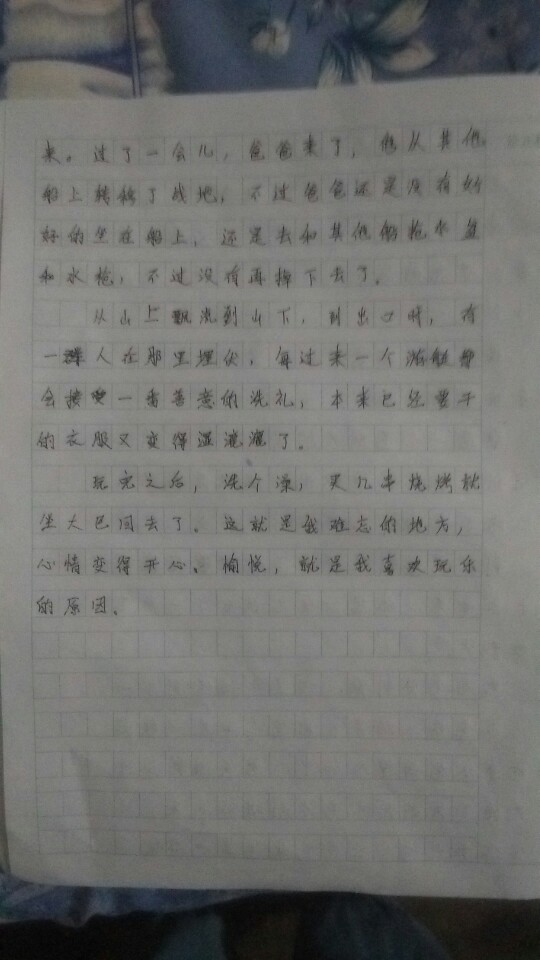 来。过了一会儿，爸爸来了，他从其他
船上转移了战地，不过爸爸还是没有好
好的坐在船上，还是去和其他船抢水盆
和水枪，不过没有再掉下去了。
从山上飘流到山下，到出口时，有
一群人在那里埋伏，每过来一个游艇都
会接受一番善意的洗礼，本来已经要干
的衣服又变得湿漉漉了。
玩完之后，洗个澡，买几串烧烤就
坐大巴回去了。这就是我难忘的地方，
心情变得开心、愉悦，就是我喜欢玩乐
的原因、